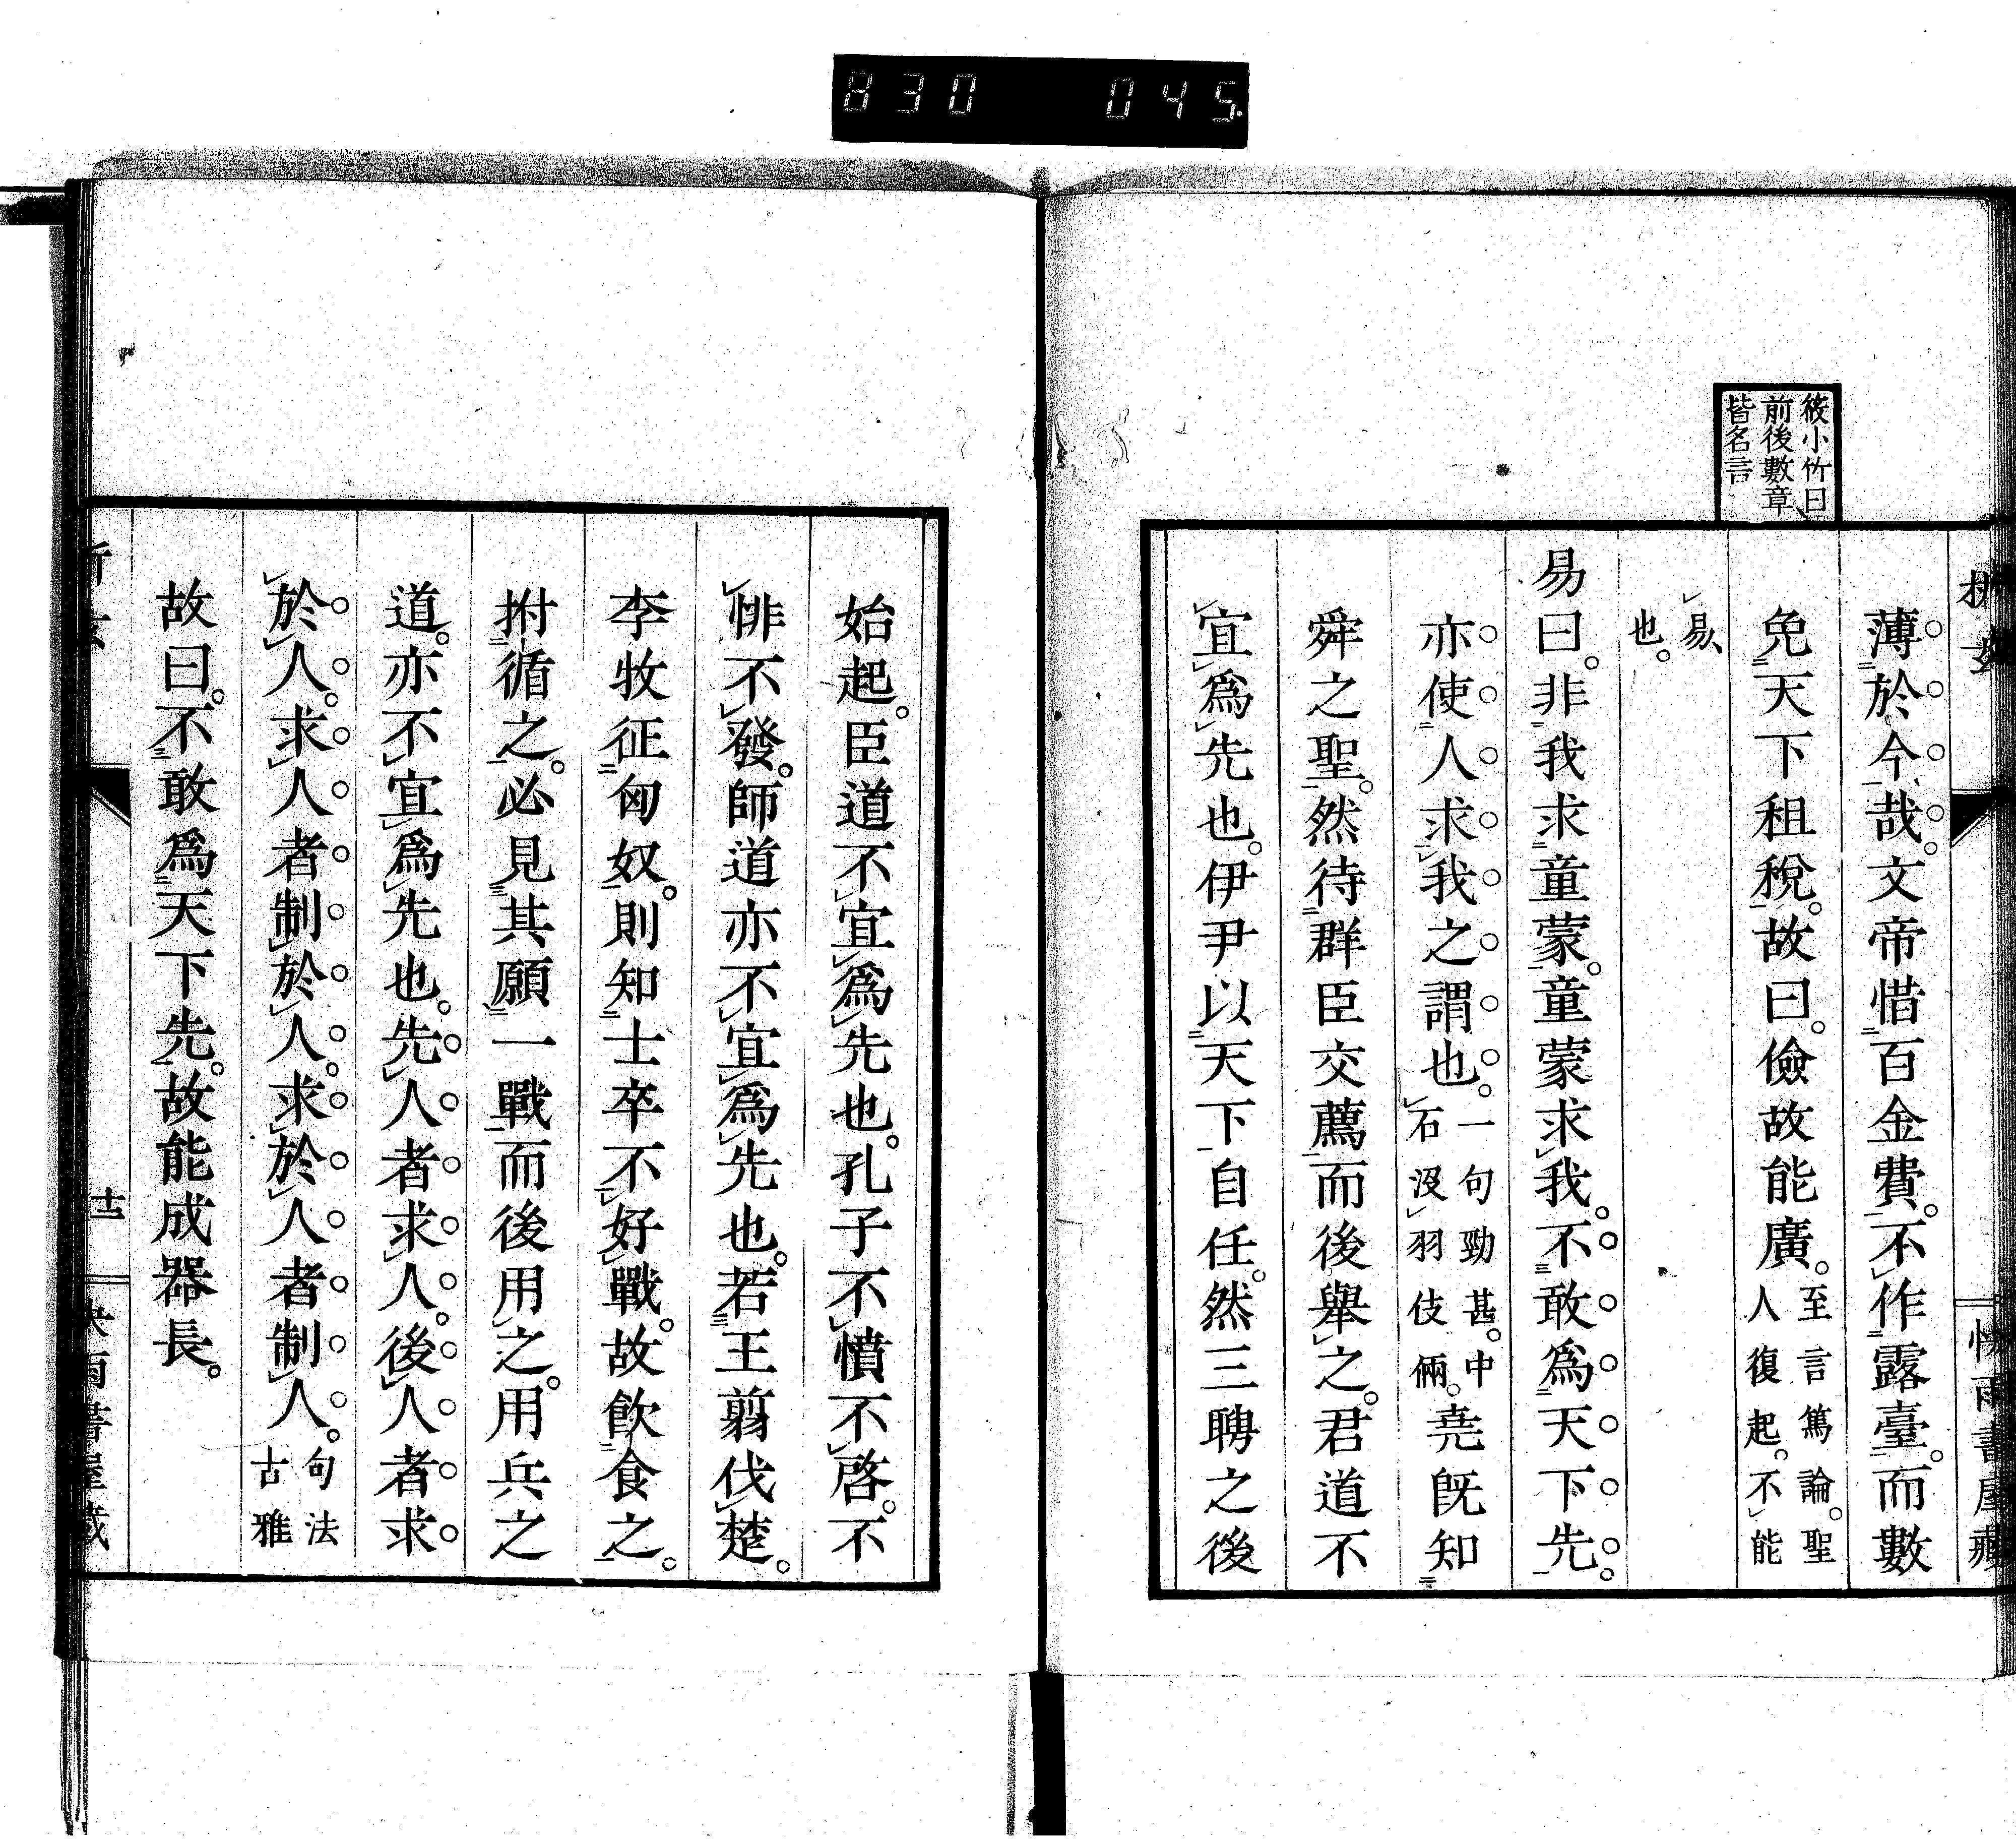 830 045
筱小竹曰
前後數章
皆名言
薄於今哉。文帝惜百金費。不作露臺。而數
免天下租稅。故曰。儉故能廣。至言篤論。聖人復起。不能
易
也。
易曰。非我求童蒙。童蒙求我。不敢爲天下先。
亦使人求我之謂也。一句勁甚。中石沒羽伎倆。堯旣知
舜之聖。然待群臣交薦而後舉之。君道不
宜爲先也。伊尹以天下自任。然三聘之後
始起。臣道不宜爲先也。孔子不憤不啓。不
悱不發。師道亦不宜爲先也。若王翦伐楚。
李牧征匈奴。則知士卒不好戰。故飮食之。
拊循之。必見其願一戰而後用之。用兵之
道。亦不宜爲先也。先人者求人。後人者求
於人。求人者制於人。求於人者制人。句法古雅
故曰。不敢爲天下先。故能成器長。
十二
雨書屋藏